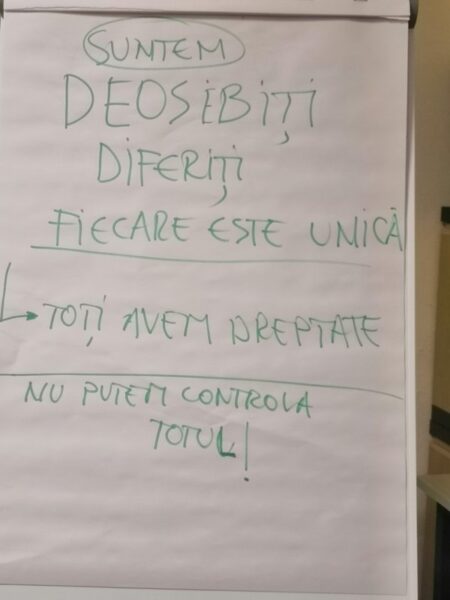 SUNTEM
DEOSiBiȚi
DiFERiȚi
FiECARE ESTE UNiCĂ
TOȚi AVEM DREPTATE
NU PUTEM CONTROLA
TOTUL!